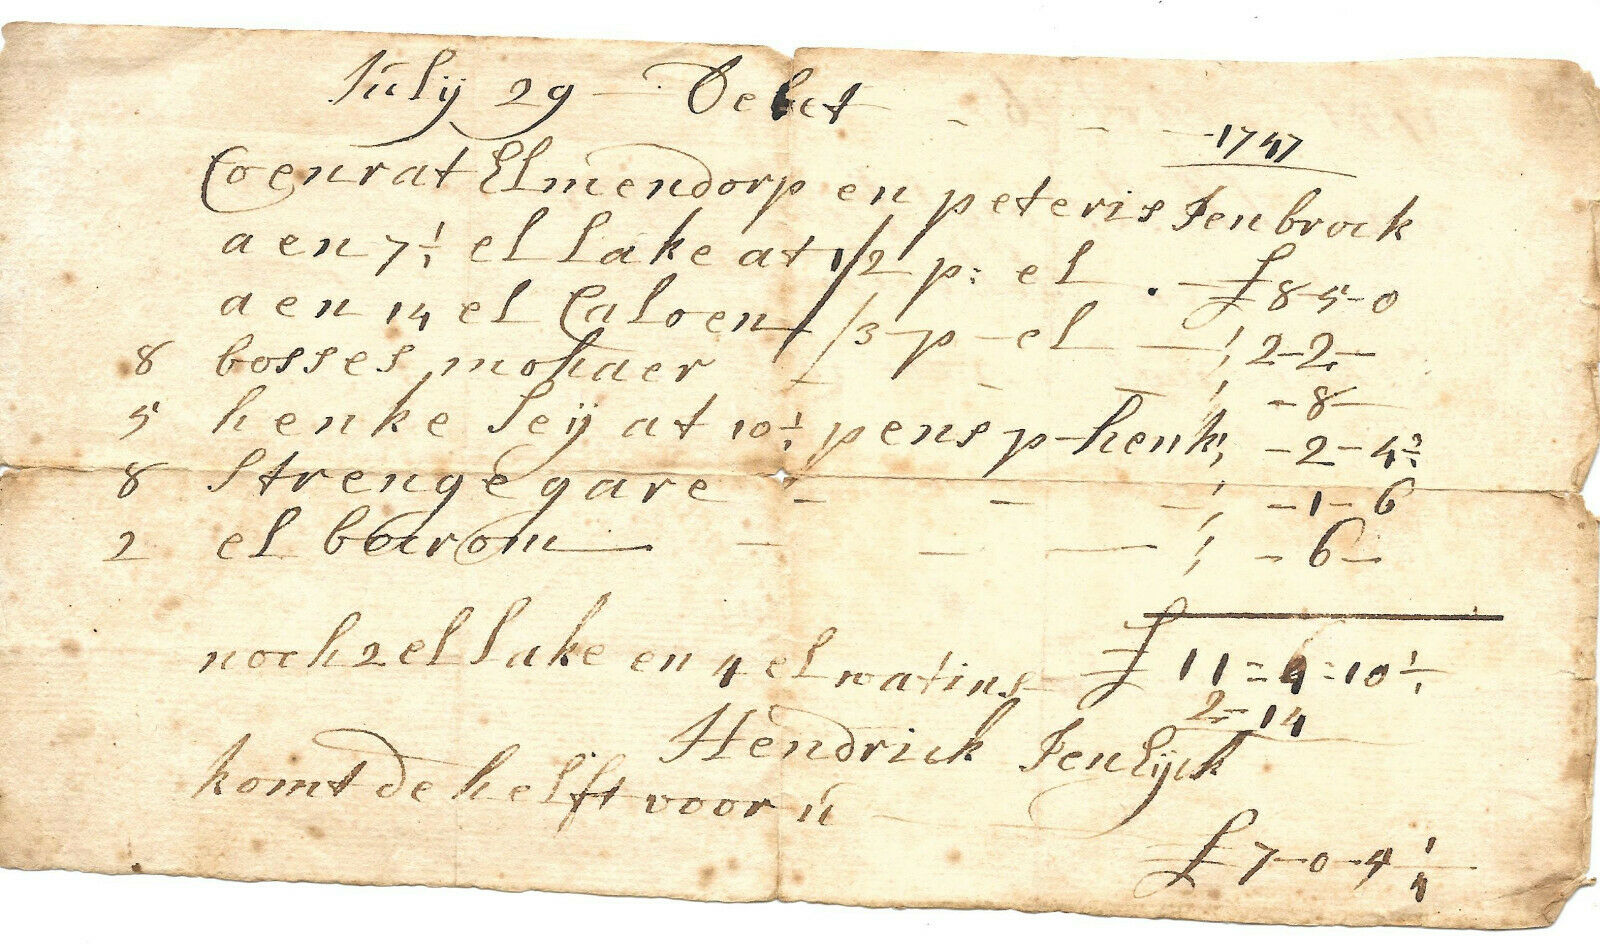 Julij 29 — Debet - - - 1747
Coenrat Elmendorp en peteris Tenbrock
aen 7½ el lake at 1/2 p: el . — £ 8-5-0
aen 14 el Caloen /3 p - el — , 2-2-
8 bosses mohaer - - , -8-
5 henke seij at 10½ pens p-henk, -2-4½
8 strenge gare - - - , -1-6
2 el boerom — - - — , -6-
£ 11=4=10½
noch 2 el lake en 4 el watins 2-14
Hendrick Ten Eyck
komt de helft voor u — £ 7-0-4¼